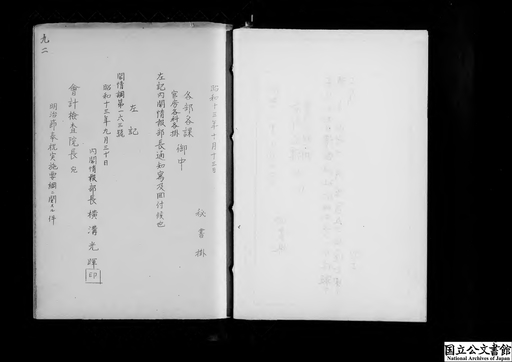 昭和十三年十月十三日
秘書掛
各部各課 御中
官房各科各掛
左記内閣情報部長通知寫及回付候也
左記
閣情綱第一六三號
昭和十三年九月三十日
内閣情報部長 横溝光暉 印
會計檢査院長 宛
明治節奉祝実施要綱ニ関スル件
九二
国立公文書館
National Archives of Japan